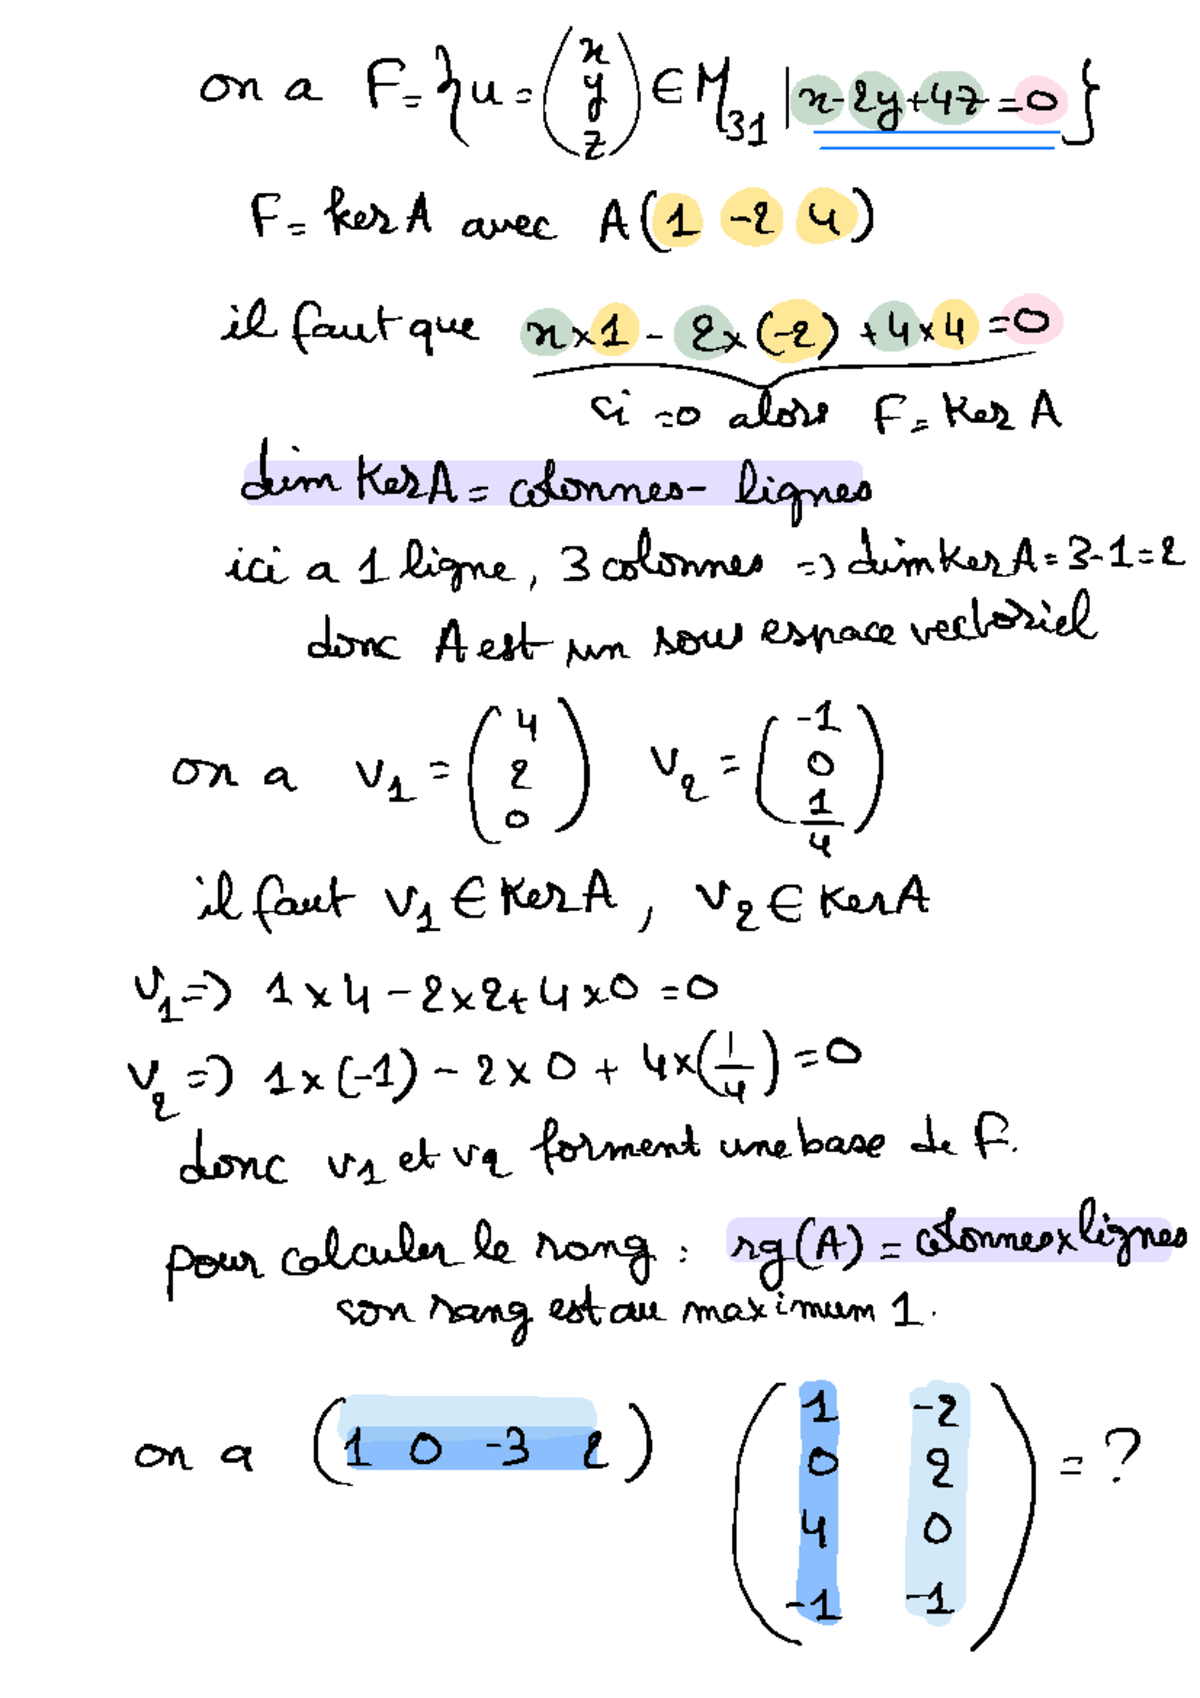 on a F = { u = ( x y z ) ∈ M31 | x-2y+4z = 0 }
F = ker A avec A ( 1 -2 4 )
il faut que x × 1 - 2 × (-2) + 4 × 4 = 0
si = 0 alors F = Ker A
dim Ker A = colonnes - lignes
ici a 1 ligne, 3 colonnes => dim ker A = 3-1 = 2
donc A est un sous espace vectoriel
on a v1 = ( 4 2 0 ) v2 = ( -1 0 1/4 )
il faut v1 ∈ Ker A , v2 ∈ Ker A
v1 => 1 × 4 - 2 × 2 + 4 × 0 = 0
v2 => 1 × (-1) - 2 × 0 + 4 × (1/4) = 0
donc v1 et v2 forment une base de F.
pour calculer le rang : rg(A) = colonnes × lignes
son rang est au maximum 1.
on a ( 1 0 -3 2 ) ( 1 -2
0 2
4 0
-1 -1 ) = ?